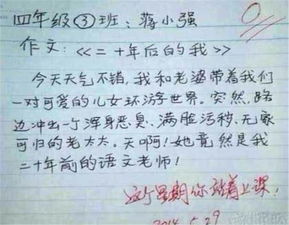 四年级③班：蒋小强
作文：《二十年后的我》
今天天气不错，我和老婆带着我们
一对可爱的儿女环游世界。突然，路
边冲出一个浑身恶臭、满脏活秽、无家
可归的老太太。天啊！她竟然是我
二十年前的语文老师！
0
这个星期你站着上课！
2014.5.29